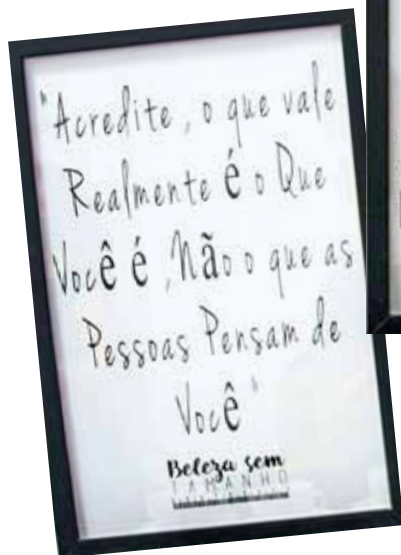 "Acredite, o que vale
Realmente é o Que
Você é, Não o que as
Pessoas Pensam de
Você"
Beleza sem
TAMANHO